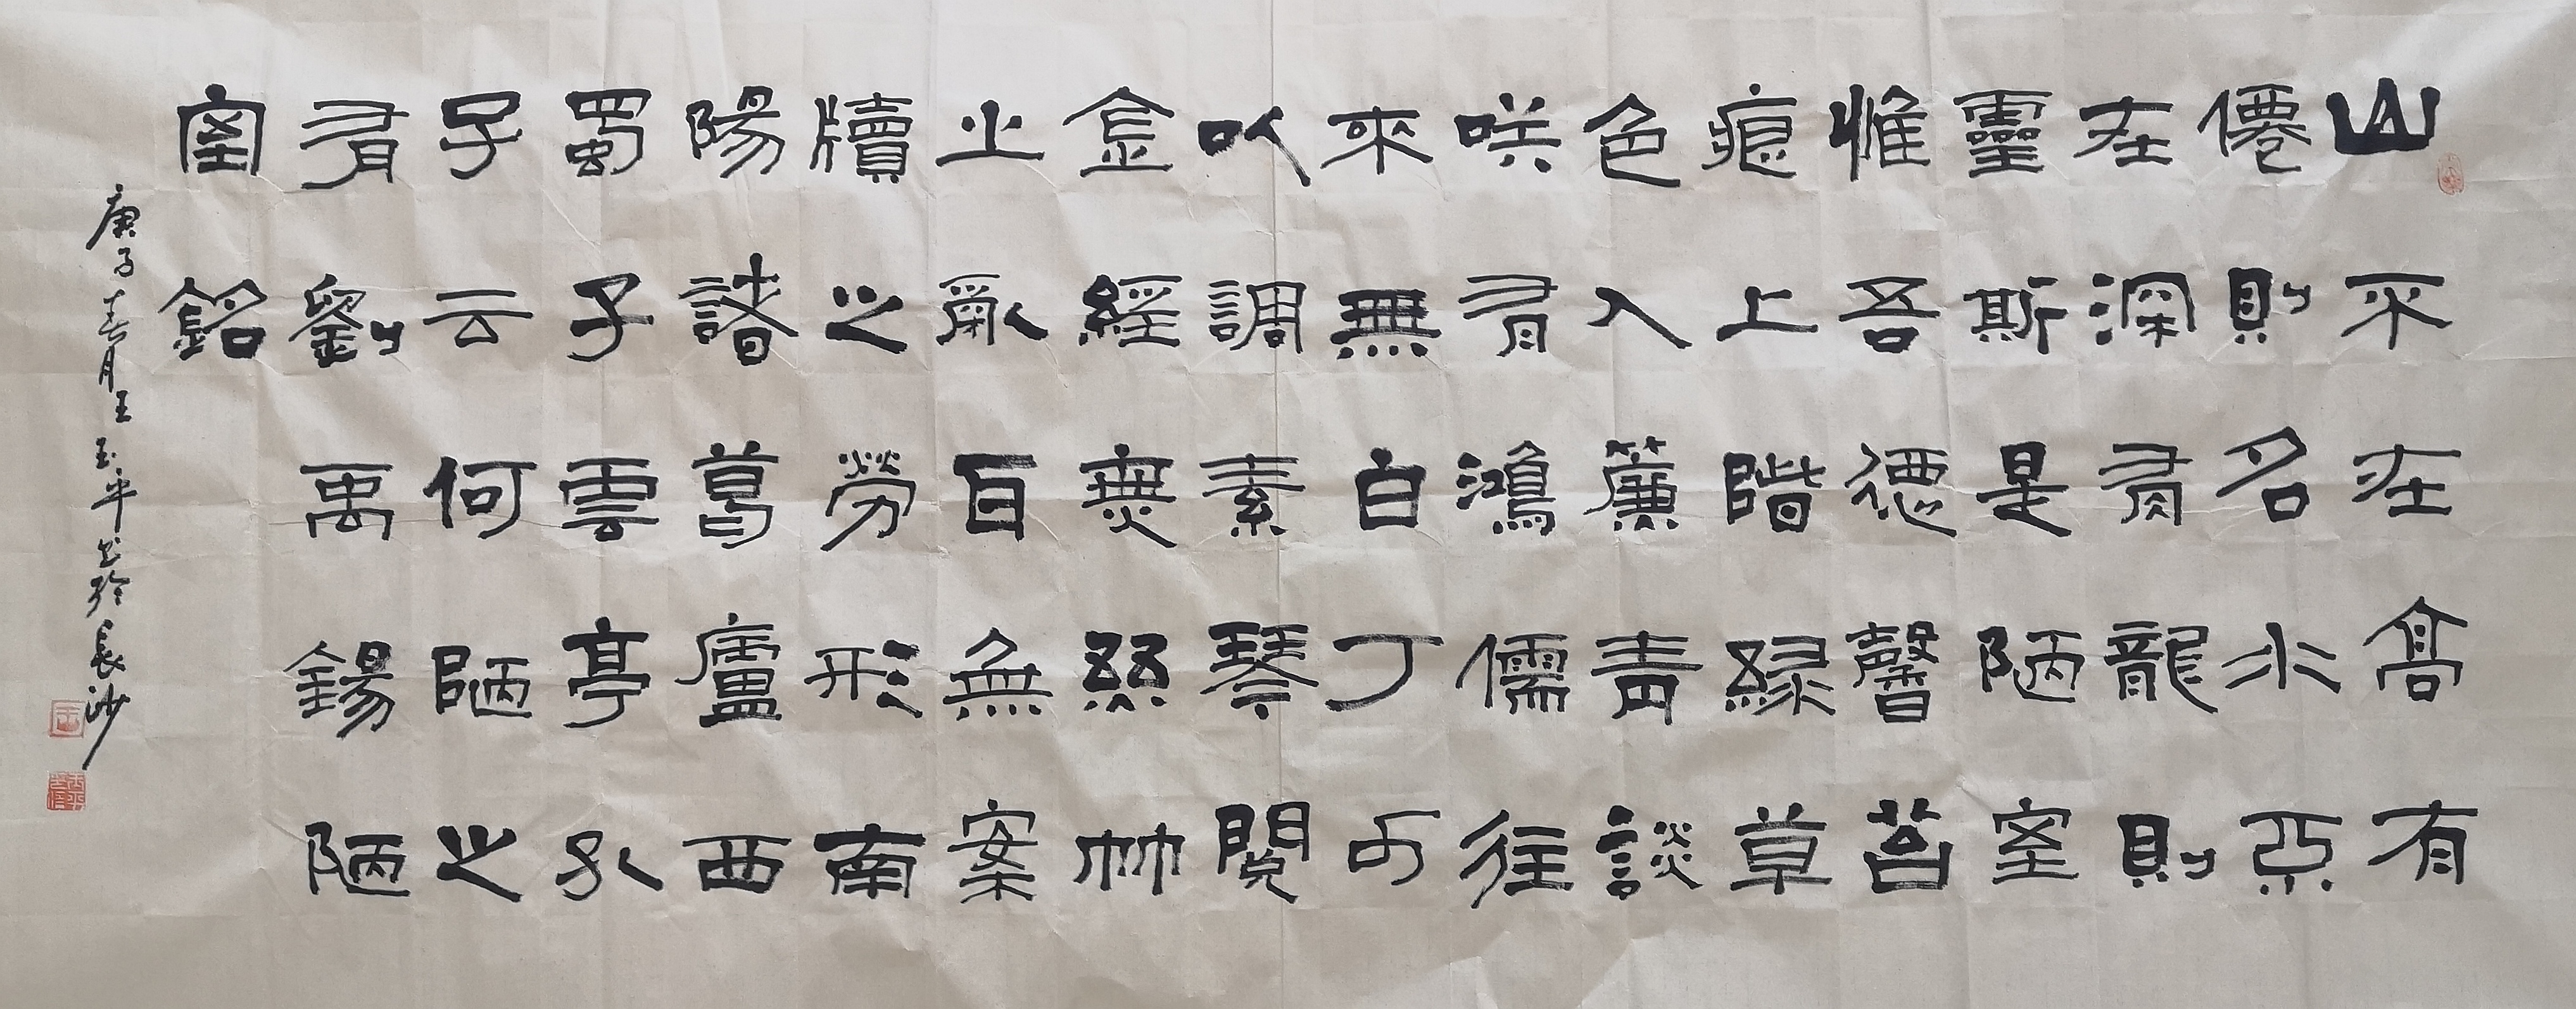 山不在高有
僊則名水不
在深有龍則
靈斯是陋室
惟吾德馨苔
痕上階綠草
色入簾青談
咲有鴻儒往
來無白丁可
以調素琴閱
金經無絲竹
之亂耳無案
牘之勞形南
陽諸葛廬西
蜀子雲亭孔
子云何陋之
有劉禹錫陋
室銘
庚子春月王玉平书於長沙